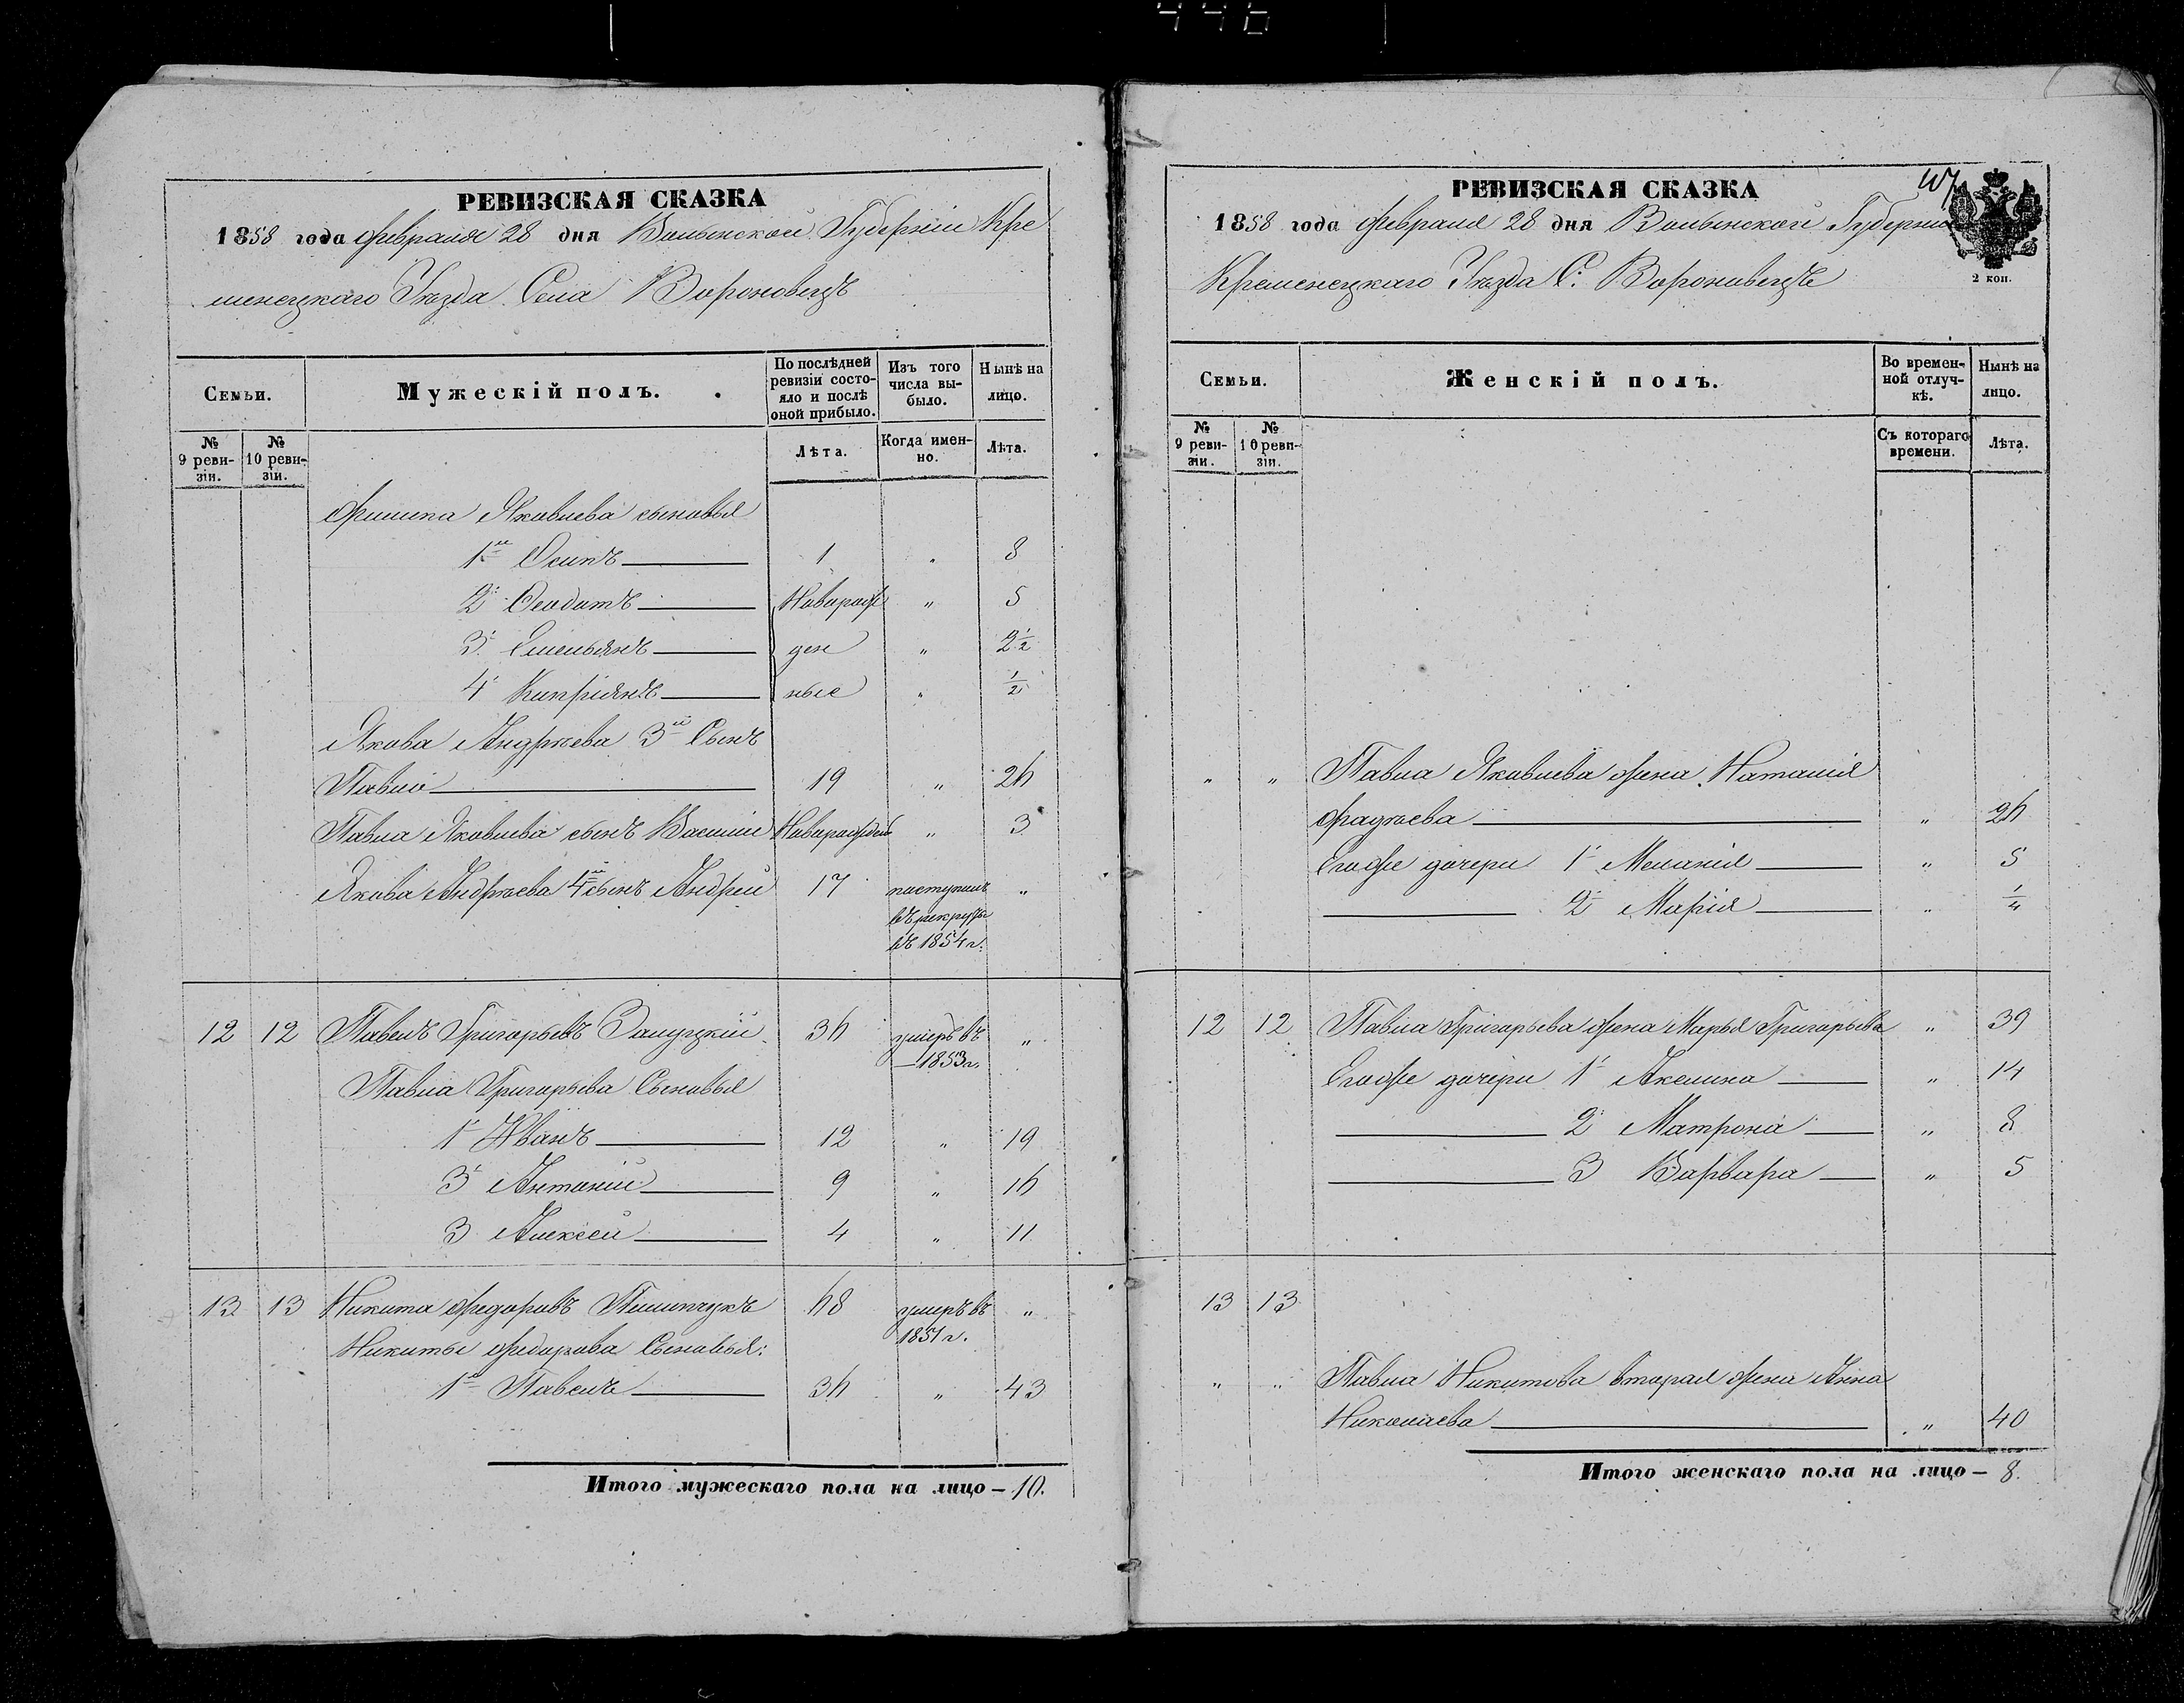 446
РЕВИЗСКАЯ СКАЗКА
1858 года февраля 28 дня Волынской Губерніи Кре
менецкаго Уѣзда Села Вороновецъ
Семьи.
Мужескій полъ.
По послѣдней ревизіи состо-
яло и послѣ оной прибыло.
Изъ того числа вы-
было.
Нынѣ на лицо.
№ 9 реви-
зіи.
№ 10 реви-
зіи.
Лѣта.
Когда имен-
но.
Лѣта.
Филипа Яковлева сыновья
1й Осипъ 1 „ 8
2й Феодотъ Новорож „ 5
3й Емельянъ ден „ 2 1/2
4й Кипріянъ ные „ 1/2
Якова Андрѣева 3й Сынъ
Павло 19 „ 26
Павла Яковлева сынъ Василій Новорожден „ 3
Якова Андрѣева 4й сынъ Андрей 17 поступилъ „
въ рекруты
въ 1854 г.
12 12 Павелъ Григорьевъ Залуцкій 36 умеръ въ „
1853 г.
Павла Григорьева Сыновья
1й Иванъ 12 „ 19
3й Антоній 9 „ 16
3 Алексей 4 „ 11
13 13 Никита Федоровъ Пилипчукъ 68 умеръ въ „
1851 г.
Никиты Федорова Сыновья:
1й Павелъ 36 „ 43
Итого мужескаго пола на лицо — 10.
РЕВИЗСКАЯ СКАЗКА
1858 года февраля 28 дня Волынской Губерніи
Кременецкаго Уѣзда С. Вороновецъ
2 коп.
Семьи.
Женскій полъ.
Во времен-
ной отлуч-
кѣ.
Нынѣ на лицо.
№ 9 реви-
зіи.
№ 10 реви-
зіи.
Съ котораго времени.
Лѣта.
„ „ Павла Яковлева жена Наталія
Фадѣева „ 26
Егоже дочери 1й Меланія „ 5
2й Марія „ 1/4
12 12 Павла Григорьева жена Марья Григорьева „ 39
Егоже дочери 1й Акелина „ 14
2й Матрона „ 8
3 Варвара „ 5
13 13
„ „ Павла Никитова вторая жена Анна
Николаева „ 40
Итого женскаго пола на лицо — 8.